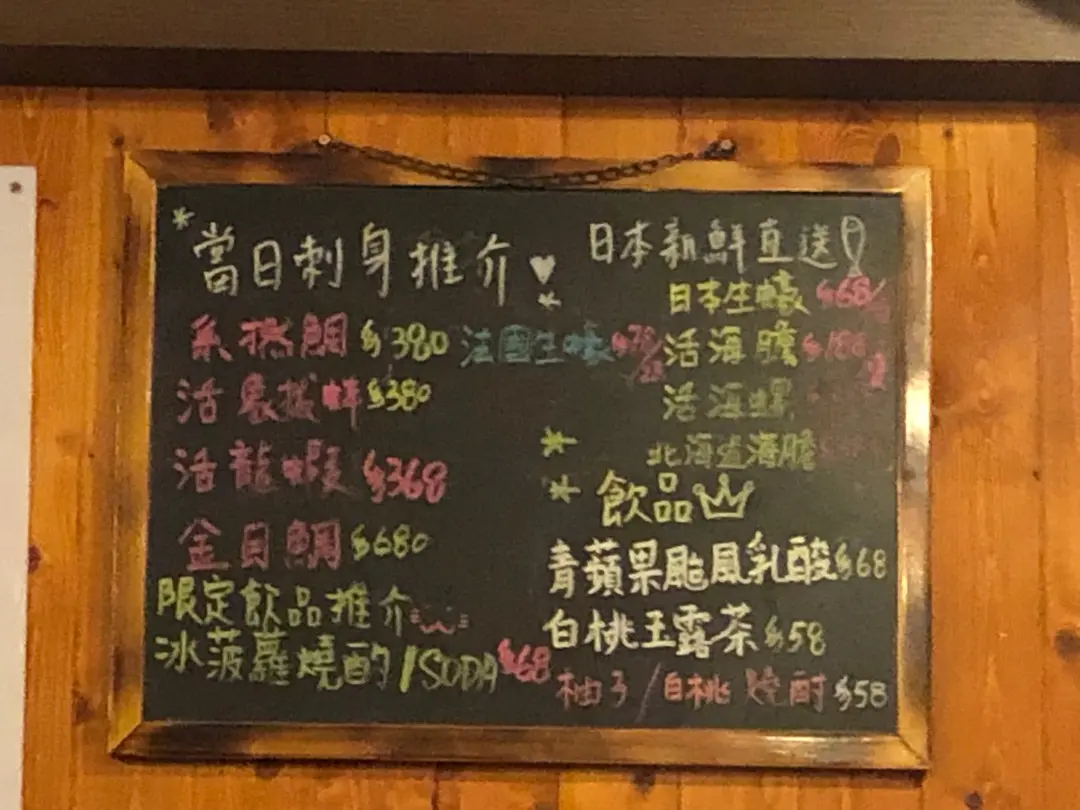 當日刺身推介
糸撚鯛 $380
活象拔蚌 $380
活龍蝦 $368
金目鯛 $680
限定飲品推介
冰菠蘿燒酌/SODA $68
法國生蠔
日本新鮮直送
日本生蠔 $68/
活海膽
活海螺
北海道海膽
飲品
青蘋果颱風乳酸 $68
白桃玉露茶 $58
柚子/白桃 燒酎 $58